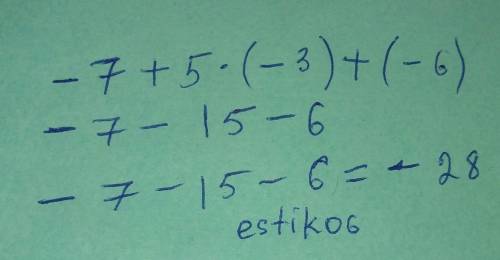 -7+5·(-3)+(-6)
-7-15-6
-7-15-6=-28
estikos